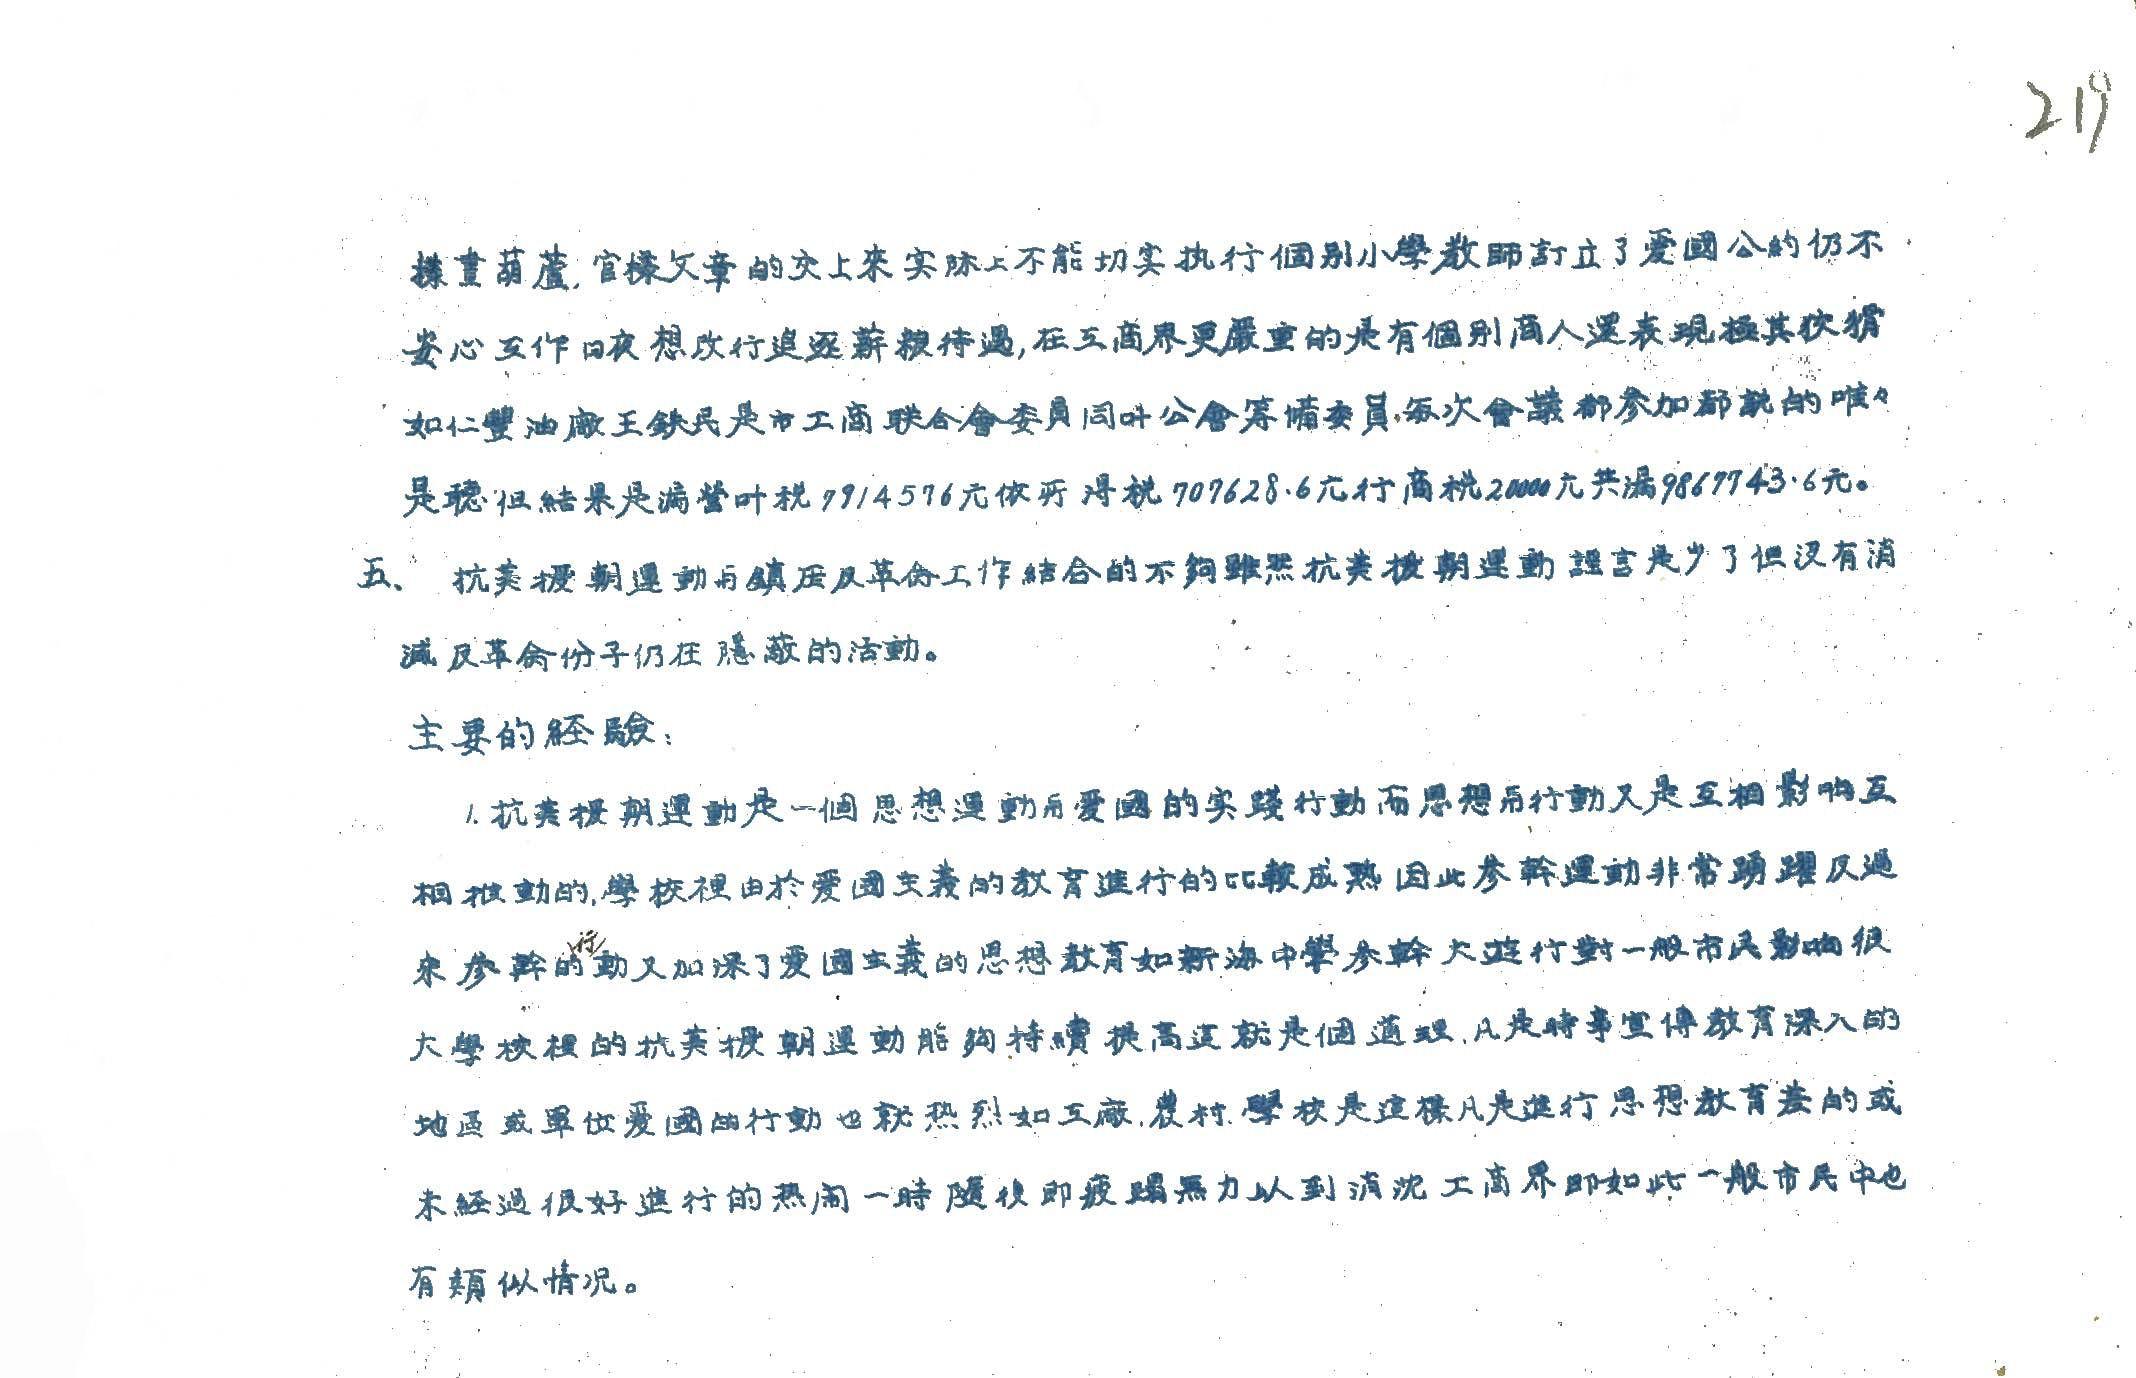 219
樣畫葫蘆，官樣文章的交上來实际上不能切实执行個別小學教師訂立了爱國公約仍不
安心工作日夜想改行追逐薪粮待遇，在工商界更嚴重的是有個別商人還表現極其狡猾
如仁豐油廠王鉄民是市工商联合會委員同叶公會筹備委員，每次會議都参加都說的唯々
是聽但結果是漏營叶税7914576元依所得税707628.6元行商税20000元共漏9867743.6元。
五、 抗美援朝運動与鎮压反革命工作結合的不夠雖然抗美援朝運動謡言是少了但没有消
滅反革命份子仍在隱蔽的活動。
主要的経驗：
1.抗美援朝運動是一個思想運動与爱國的实踐行動而思想与行動又是互相影响互
相推動的，學校裡由於爱國主義的教育進行的比較成熟因此参幹運動非常踴躍反過
来参幹的行動又加深了爱國主義的思想教育如新海中學参幹大遊行對一般市民影响很
大學校裡的抗美援朝運動能夠持續提高這就是個道理，凡是時事宣傳教育深入的
地區或單位爱國的行動也就热烈如工廠，農村，學校是這樣凡是進行思想教育差的或
未経過很好進行的热闹一時隨後即疲蹋無力以到消沈工商界即如此一般市民中也
有類似情况。